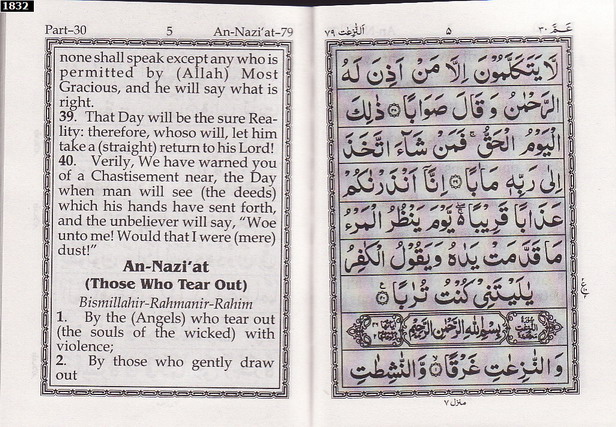 1832
Part–30 5 An-Nazi'at–79
none shall speak except any who is
permitted by (Allah) Most
Gracious, and he will say what is
right.
39. That Day will be the sure Rea-
lity: therefore, whoso will, let him
take a (straight) return to his Lord!
40. Verily, We have warned you
of a Chastisement near, the Day
when man will see (the deeds)
which his hands have sent forth,
and the unbeliever will say, “Woe
unto me! Would that I were (mere)
dust!”
An-Nazi'at
(Those Who Tear Out)
Bismillahir-Rahmanir-Rahim
1. By the (Angels) who tear out
(the souls of the wicked) with
violence;
2. By those who gently draw
out
عَمَّ ٣٠ ٥ اَلنّٰزِعٰت ٧٩
لَّا يَتَكَلَّمُوْنَ اِلَّا مَنْ اَذِنَ لَهُ
الرَّحْمٰنُ وَ قَالَ صَوَابًا ۝ ذٰلِكَ
الْيَوْمُ الْحَقُّ ۚ فَمَنْ شَآءَ اتَّخَذَ
اِلٰى رَبِّهٖ مَاٰبًا ۝ اِنَّاۤ اَنْذَرْنٰكُمْ
عَذَابًا قَرِيْبًا ۬ۚۖ يَّوْمَ يَنْظُرُ الْمَرْءُ
مَا قَدَّمَتْ يَدٰهُ وَيَقُوْلُ الْكٰفِرُ
يٰلَيْتَنِيْ كُنْتُ تُرٰبًا ۝
بِسْمِ اللّٰهِ الرَّحْمٰنِ الرَّحِيْمِ
وَ النّٰزِعٰتِ غَرْقًا ۝ وَّ النّٰشِطٰتِ
منزل ٧